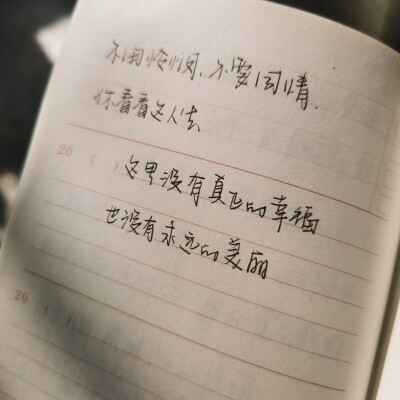 不用怜悯，不要同情，
你看看这人生
20 （ ） 这里没有真正的幸福
也没有永远的美丽
20 （ ）